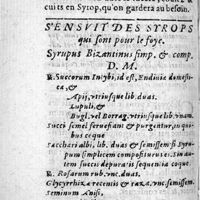 cuits en Syrop, qu'on gardera au besoin.
S'ENSUIT DES SYROPS
qui sont pour le foye.
Syrupus Bizantinus simp. & comp.
D. M.
R. Succorum Intybi, id est, Endiuiæ domesti-
ca, &
Apij, vtriusque lib. duas.
Lupuli, &
Bugl. vel Borrag. vtriusque lib. vnam.
Succi semel ferueant & purgentur, in qui-
bus coque
Sacchari albi, lib. duas & semissem fi Syru-
pum simplicem compositurus es. Sin au-
tem succis depuratis sequentia incoque.
R. Rosarum rub. vnc. duas.
Glycyrrhizæ recentis & rasæ, vnc. semissem.
Seminum Anisi,